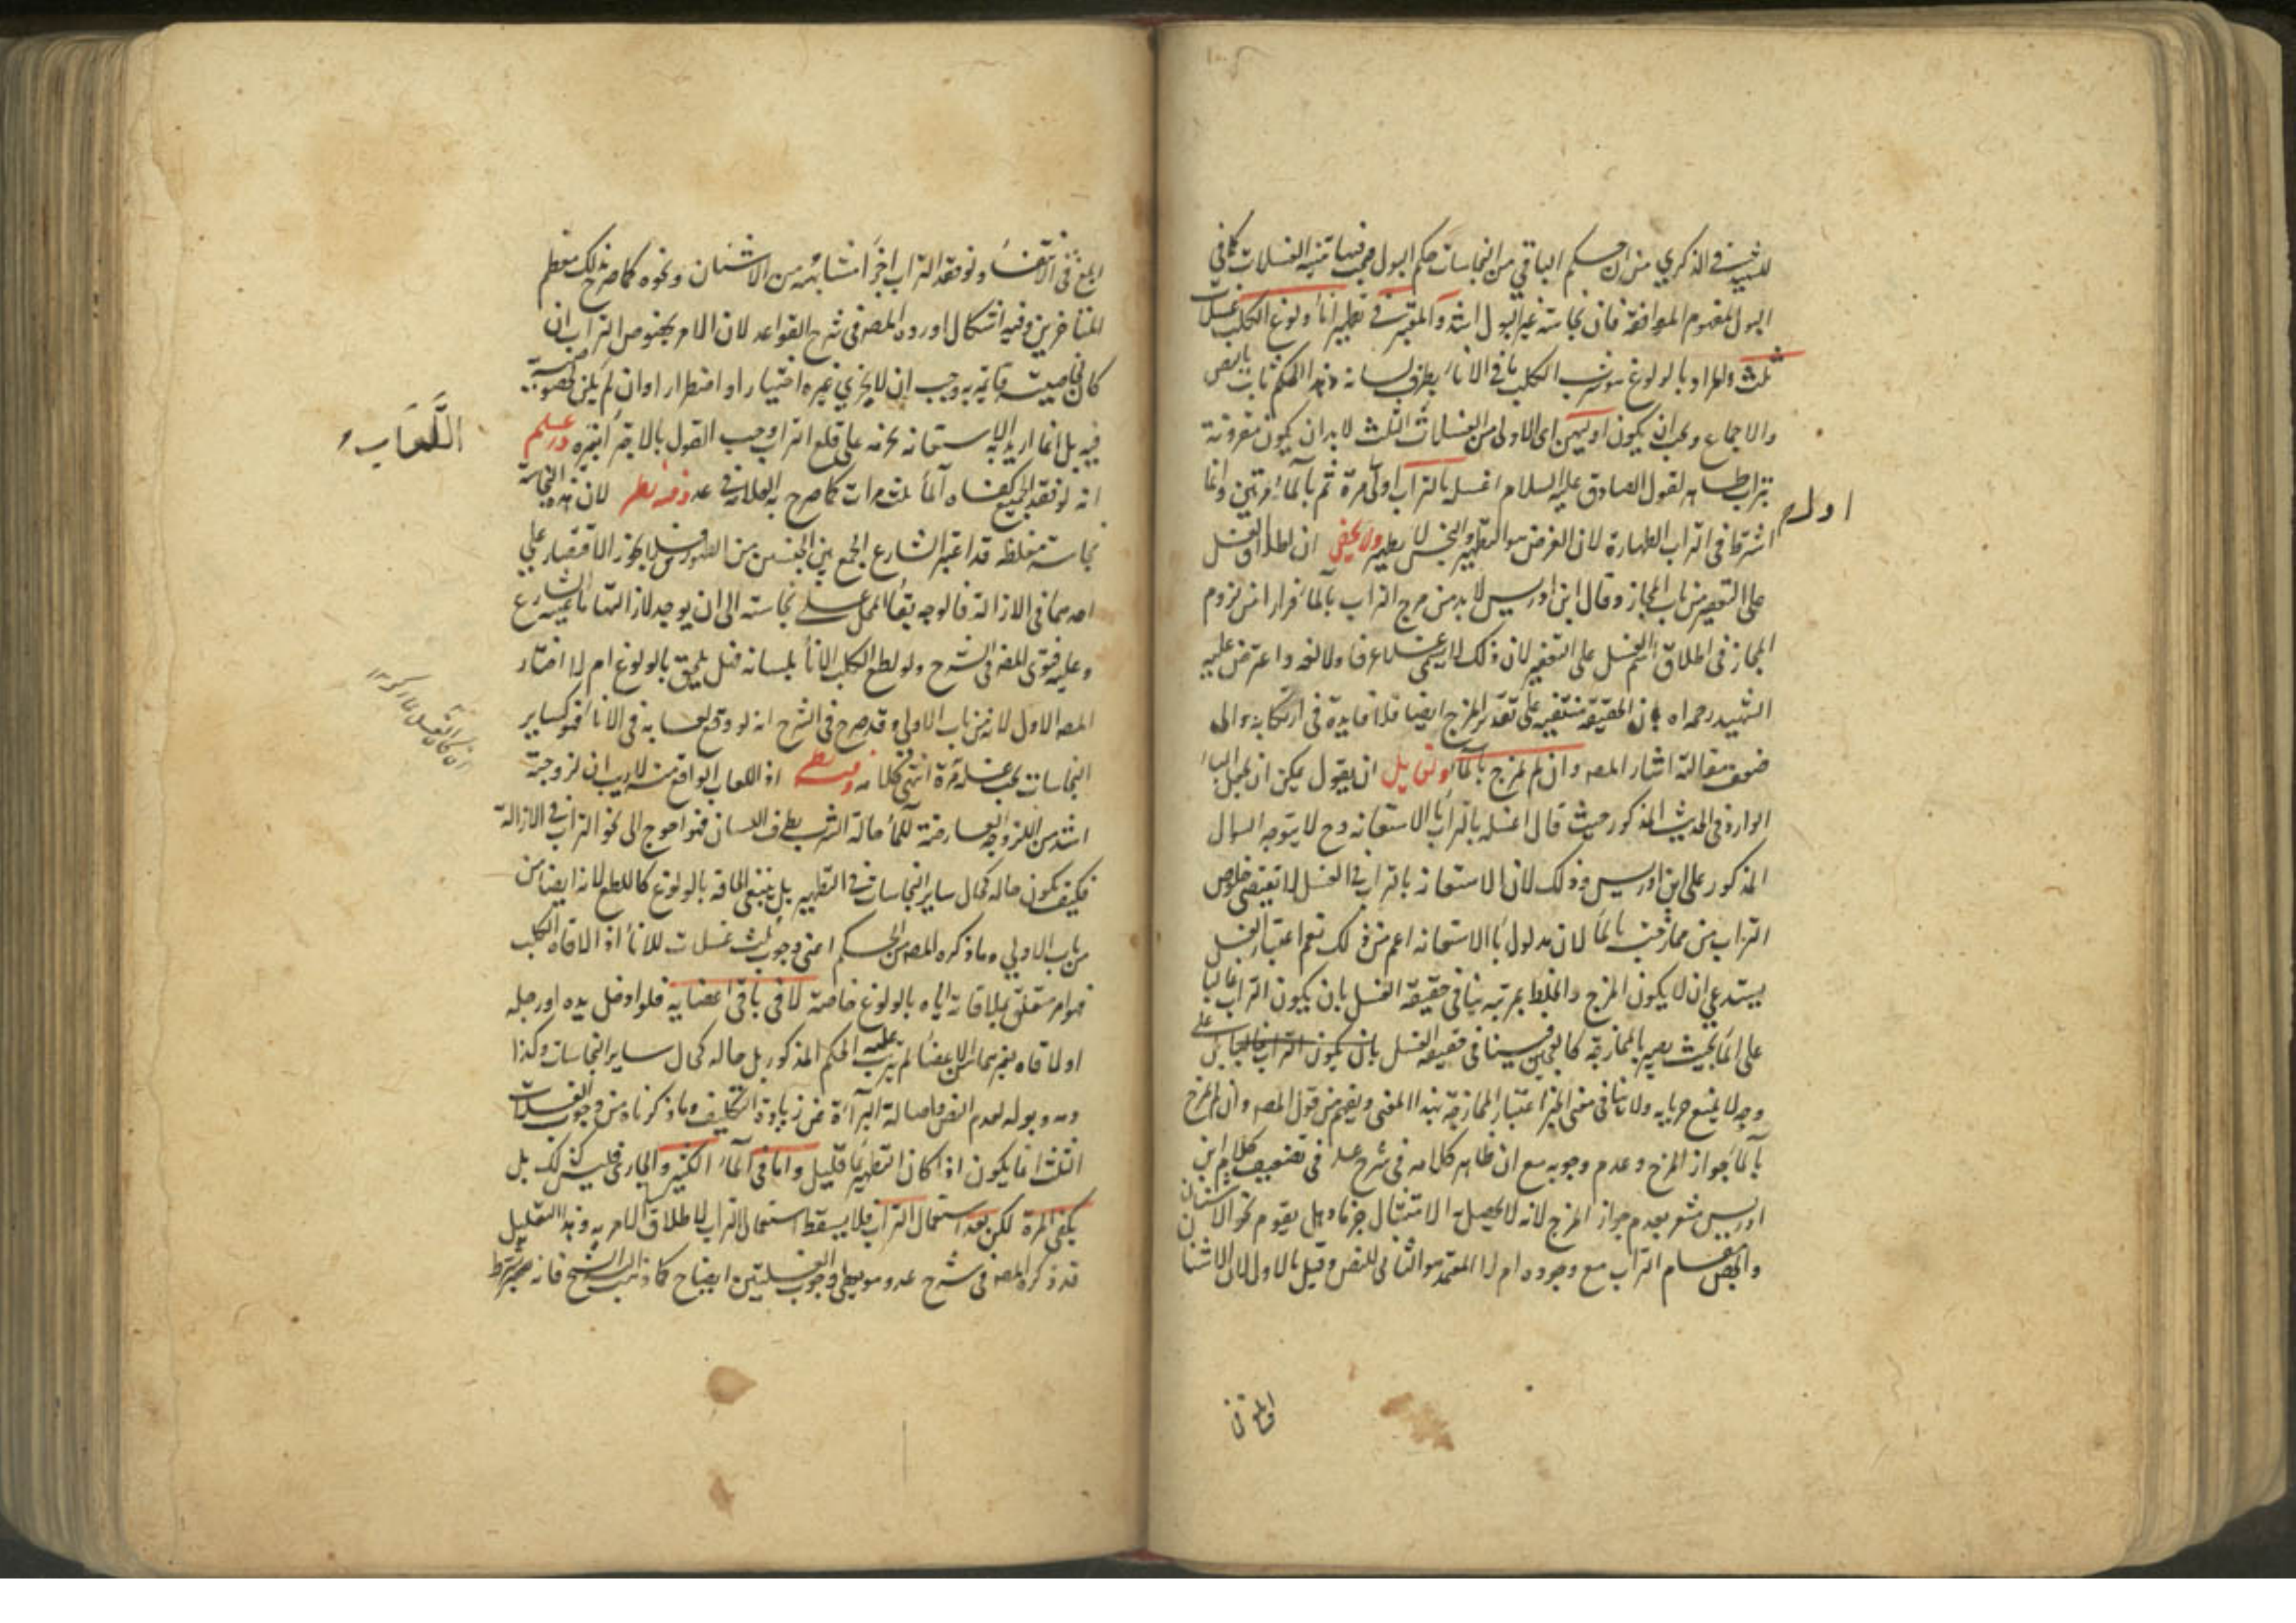 للشهيد في الذكرى من ان حكم الباقي من النجاسات حكم البول فيجب فيها تثنية الغسلات كما في
البول لمفهوم الموافقة فان نجاسة غير البول اشد والمعتبر في تطهير اناء ولوغ الكلب غسلات
ثلث والمراد بالولوغ شرب الكلب مما في الاناء بطرف لسانه وهذا الحكم ثابت بالنص
والاجماع ويجب ان يكون اوليهن اى الاولى من الغسلات الثلث لا بد ان يكون مقرونة
بتراب طاهر لقول الصادق عليه السلام اغسله بالتراب اولى مرة ثم بالماء مرتين وانما
اول م
اشترط في التراب الطهارة لان الغرض هو التطهير والنجس لا يطهر ولا يخفى ان اطلاق الغسل
على التعفير من باب المجاز وقال ابن ادريس لا بد من مزج التراب بالماء فرارا من لزوم
المجاز في اطلاق اسم الغسل على التعفير لان ذلك لا يسمى غسلا عرفا ولا لغة واعترض عليه
الشهيد رحمه اه بان الحقيقة منتفية على تقدير المزج ايضا فلا فايدة في ارتكابه والى
ضعف مقالته اشار المصه وان لم يمزج بالماء ولقايل ان يقول يمكن ان يجعل الباء
الواردة في الحديث المذكور حيث قال اغسله بالتراب باء الاستعانة وح لا يتوجه السوال
المذكور على ابن ادريس وذلك لان الاستعانة بالتراب في الغسل لا تقتضي خلوص
التراب من ممازجته بالماء لان مدلول باء الاستعانة اعم من ذلك نعم اعتبار الغسل
يستدعي ان لا يكون المزج والخلط بمرتبة ينافي حقيقة الغسل بان يكون التراب غالبا
على الماء بحيث يصير بالممازجة كالعجين فينافي حقيقة الغسل بان يكون التراب غالبا على
وجه لا يمنع جريانه ولا ينافي معنى المزج اعتبار الممازجة بهذا المعنى ويفهم من قول المصه وان لم يمزج
بالماء جواز المزج وعدم وجوبه مع ان ظاهر كلامه في شرح عد في تضعيف كلام ابن
ادريس مشعر بعدم جواز المزج لانه لا يحصل به الامتثال جزما وهل يقوم نحو الاشنان
والجص مقام التراب مع وجوده ام لا المعتمد هو الثاني للنص وقيل بالاول لان الاشنان
ابلغ في
ابلغ في الانقاء ولو فقد التراب اجزأ مشابهه من الاشنان ونحوه كما صرح بذلك معظم
المتاخرين وفيه اشكال اورده المصه في شرح القواعد لان الامر بخصوص التراب ان
كان لخاصيته قائمة به وجب ان لا يجزي غيره اختيارا او اضطرارا وان لم يكن لخصوصية
فيه بل انما اريد به الاستعانة بنحوه على قلع التراب وجب القول بالاجزاء بغيره واعلم
اللُّعَاب
انه لو فقد الجميع كفاه الماء ثلث مرات كما صرح به العلامة في عد وفيه نظر لان هذه النجاسة
نجاسة مغلظة قد اعتبر الشارع الجمع بين الجنسين من الطهور فلا يجوز الاقتصار على
احدهما في الازالة فالوجه بقاء المحل على نجاسته الى ان يوجد لازالتها ما عينه الشارع
وعليه فتوى المصه في الشرح ولو لطع الكلب الاناء بلسانه فهل يلحق بالولوغ ام لا اختار
المصه الاول لانه من باب الاولى وقد صرح في الشرح انه لو وقع لعابه في الاناء فهو كساير
النجاسات يجب غسله مرة انتهى كلامه وفيه نظر اذ اللعاب الواقع منه لا ريب ان لزوجته
اشد من اللزوجة العارضة للماء حالة الشرب بطرف اللسان فهو احوج الى نحو التراب في الازالة
فكيف يكون حاله كحال ساير النجاسات في التطهير بل ينبغي الحاقه بالولوغ كاللطع لانه ايضا من
من باب الاولى وما ذكره المصه من الحكم اعنى وجوب ثلث غسلات للاناء اذا لاقاه الكلب
فهو امر متعلق بملاقاته اياه بالولوغ خاصة لا في باقي اعضايه فلو ادخل يده او رجله
او لاقاه بغيرهما من الاعضاء لم يترتب عليه الحكم المذكور بل حاله كحال ساير النجاسات وكذا
دمه وبوله لعدم النص واصالة البراءة من زيادة التكليف وما ذكرناه من وجوب الغسلات
الثلث انما يكون اذا كان التطهير بماء قليل واما في الماء الكثير والجاري فليس كذلك بل
يكفي المرة لكن بعد استعمال التراب فلا يسقط استعمال التراب لاطلاق الامر به وهذا التعليل
قد ذكره المصه في شرح عد وهو يعطي وجوب الغسلتين ايضا ح كما ذهب اليه الشيخ فانه يشترط